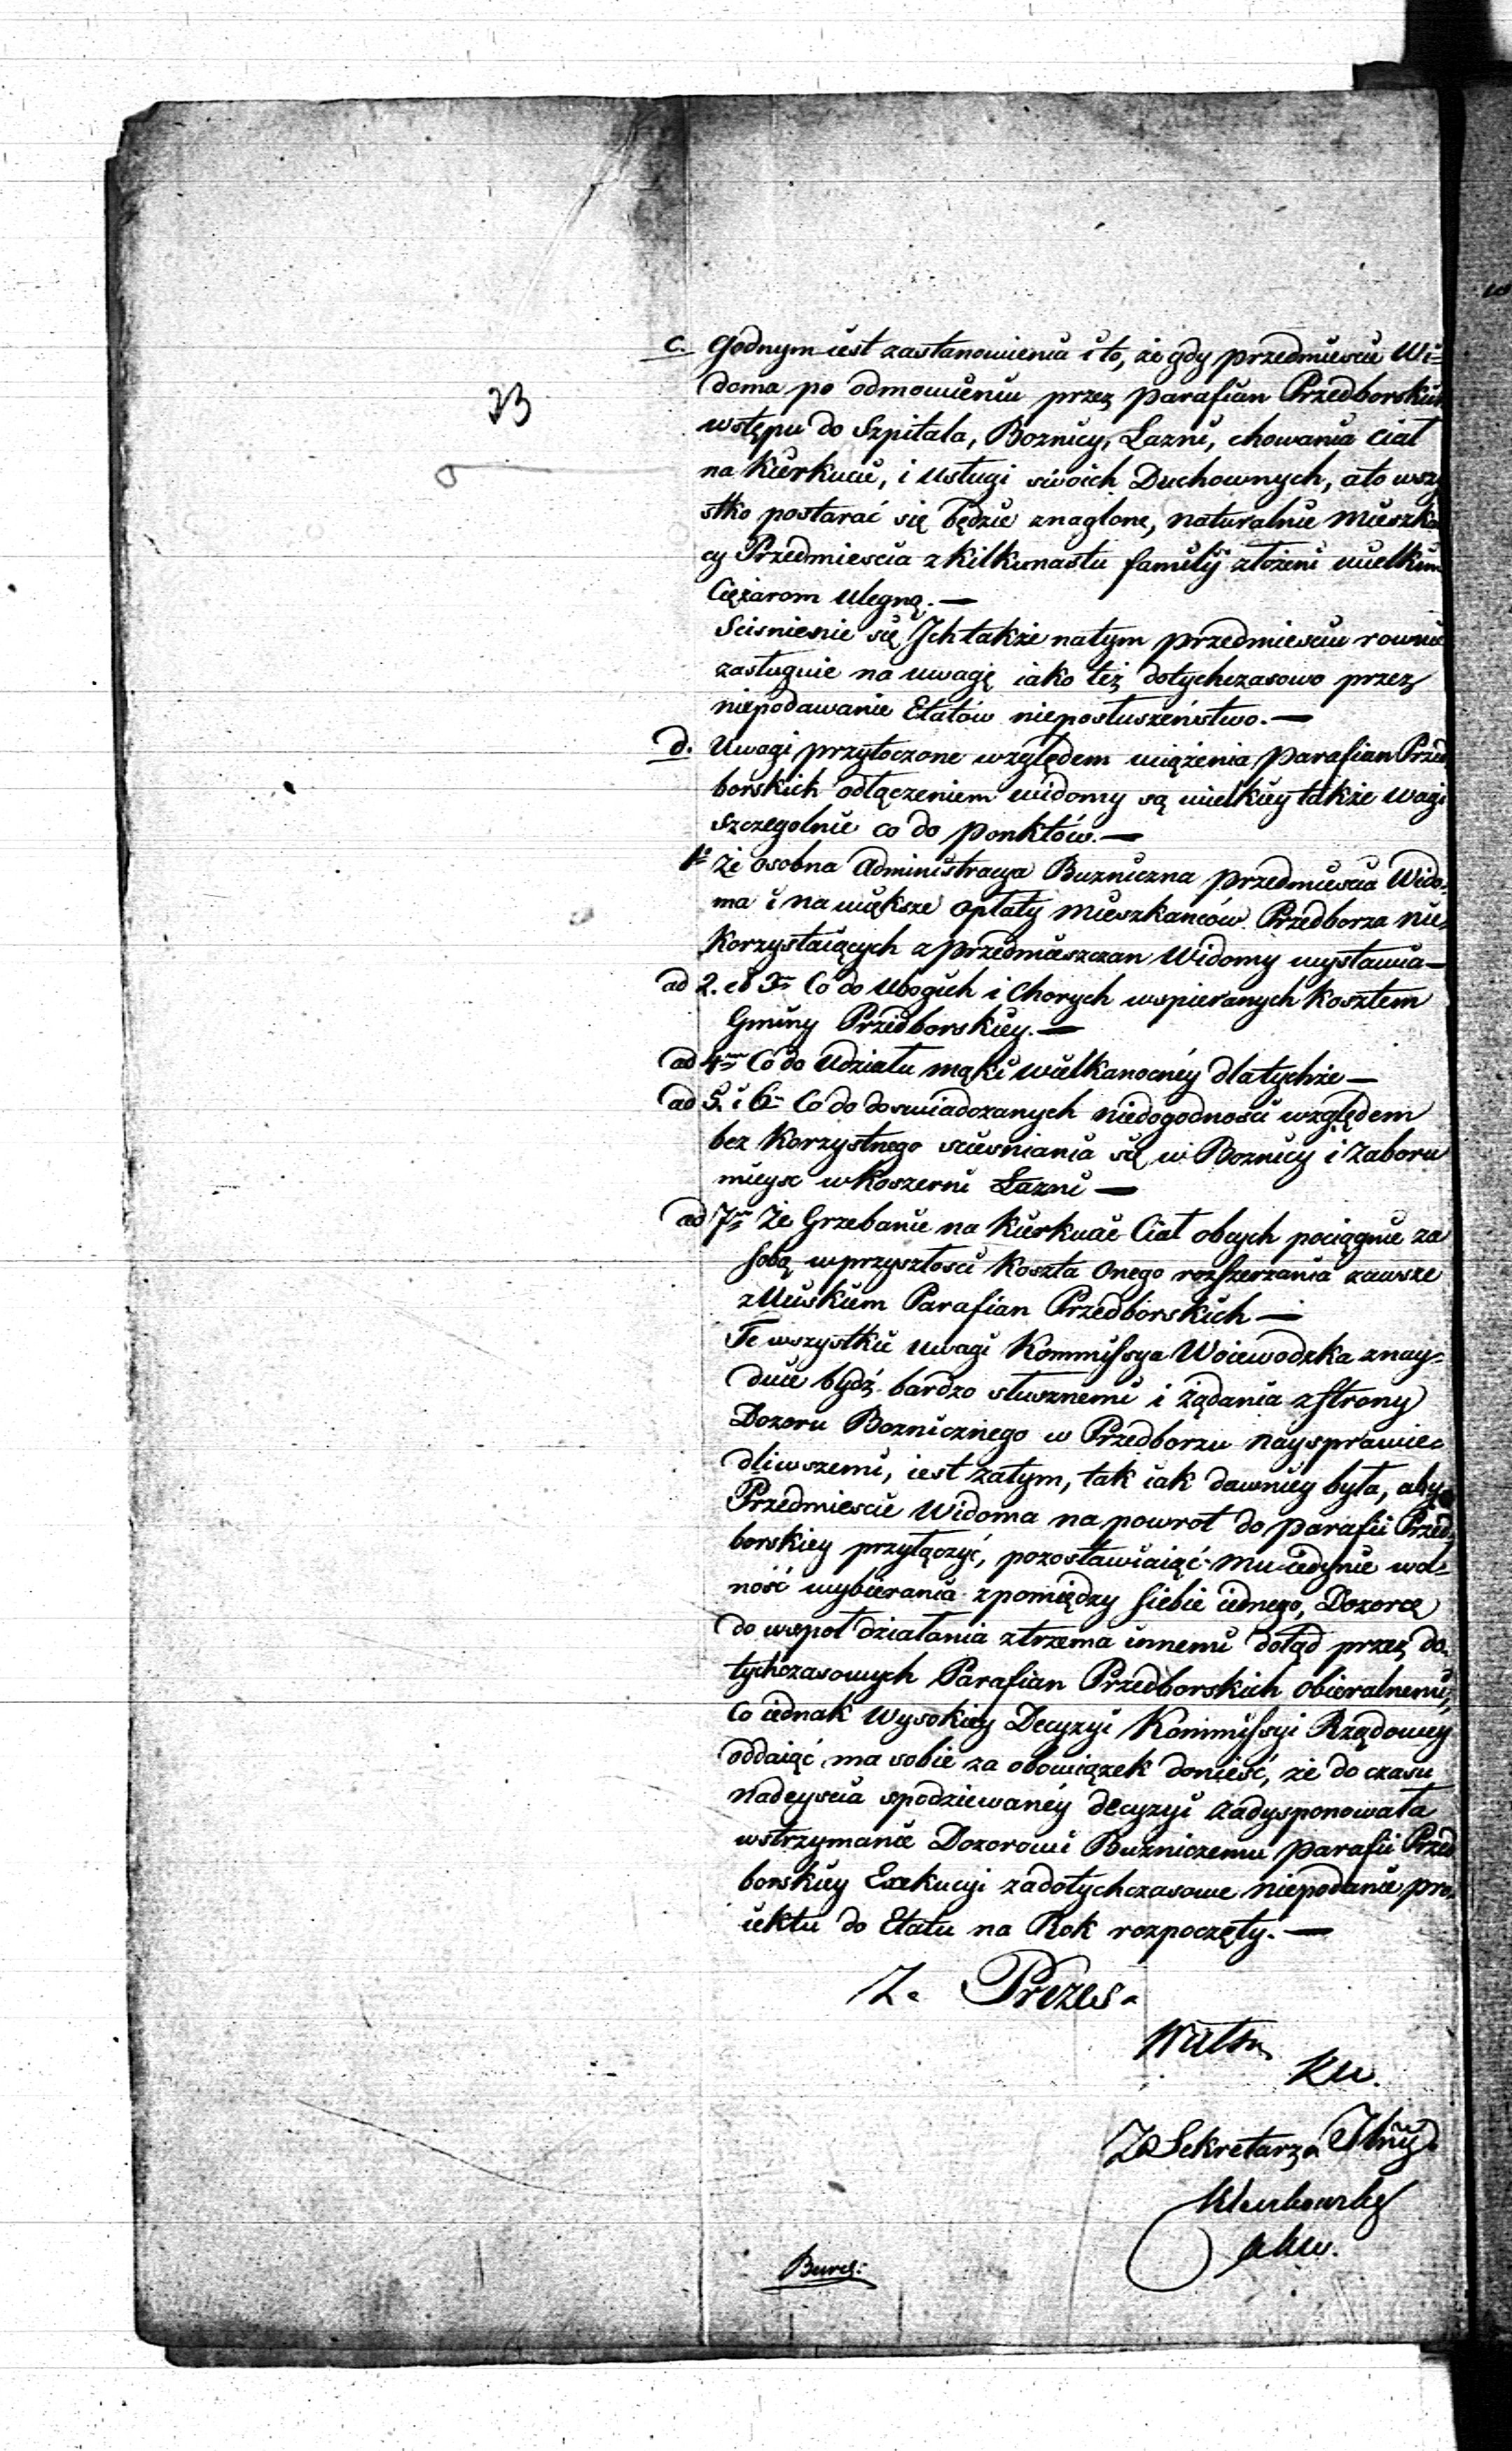 23
c. Godnym iest zastanowienia i to, że gdy przedmieście Wi-
doma po odmowieniu przez parafian Przedborskich
wstępu do Szpitala, Boznicy, Łazni, chowania ciał
na Kierkucie, i usługi swoich Duchownych, oto wszy
stko postarać się będzie znaglone, naturalnie mieszkań
cy Przedmieścia z kilkunastu familij złożeni wielkim
Ciężarom ulegną. —
Scisnienie się Ich także na tym przedmieściu rownie
zasługuie na uwagę iako też dotychczasowo przez
niepodawanie Etatów nieposłuszeństwo. —
d. Uwagi przytoczone względem uciążenia parafian Przed
borskich odłączeniem widomy są wielkiey także wagi
szczegolnie co do ponktów. —
1o że osobna Administracya Buzniczna przedmieścia Wido-
ma i na większe opłaty mieszkańców Przedborza nie
korzystaiących z przedmieszczan Widomy wystawia —
ad 2. et 3m Co do ubogich i chorych wspieranych kosztem
Gminy Przedborskiey. —
ad 4m Co do udziału mąki wielkanocnéy dla tychże —
ad 5. i 6m Co do doswiadczanych niedogodności względem
bez korzystnego sciesniania się w Boznicy i zaboru
mieysc w koszerni Łazni —
ad 7m że Grzebanie na Kierkucie Ciał obcych pociągnie za
sobą w przyszłości koszta onego rozszerzania zawsze
z uciskiem Parafian Przedborskich —
Te wszystkie uwagi Kommissya Woiewodzka znay-
duie bydź bardzo słusznemi i żądania z strony
Dozoru Boznicznego w Przedborzu nayspra­wie-
dliwszemi, iest zatym, tak iak dawniey była, aby
Przedmieście Widoma na powrot do parafii Przed
borskiey przyłączyć, pozostawiaiąć mu iedynie wol-
ność wybierania z pomiędzy siebie iednego, Dozorcę
do wspoł działania z trzema innemi dotąd przez do-
tychczasowych Parafian Przedborskich obieralnemi,
Co iednak Wysokiey Decyzyi Kommissyi Rządowey
oddaiąć ma sobie za obowiązek donieść, że do czasu
nadeyscia spodziewanéy decyzyi zadysponowała
wstrzymanie Dozorowi Buzniczemu parafii Przed
borskiey Exekucyi za dotychczasowe niepodanie pro-
iektu do Etatu na Rok rozpoczęty. —
Z. Prezes.
KW.
Za Sekretarza Jlny